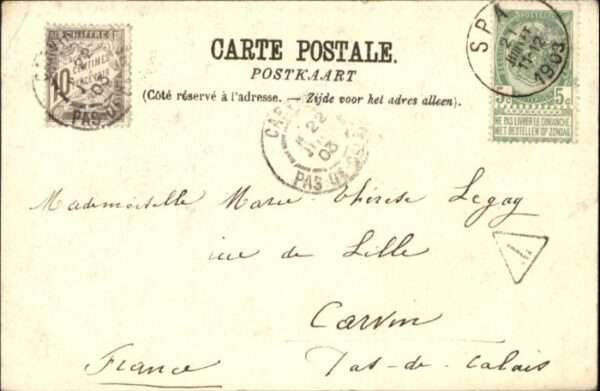 CHIFFRES
10
CENTIMES
A PERCEVOIR
22
03
PAS-DE-
CARTE POSTALE.
POSTKAART
(Côté réservé à l'adresse. — Zijde voor het adres alleen).
SPA
21
11-12
1903
5c 5c
NE PAS LIVRER LE DIMANCHE
NIET BESTELLEN OP ZONDAG
22
03
PAS-DE-
Mademoiselle Marie-Thérèse Legay
rue de Lille
T
Carvin
France Pas-de-Calais